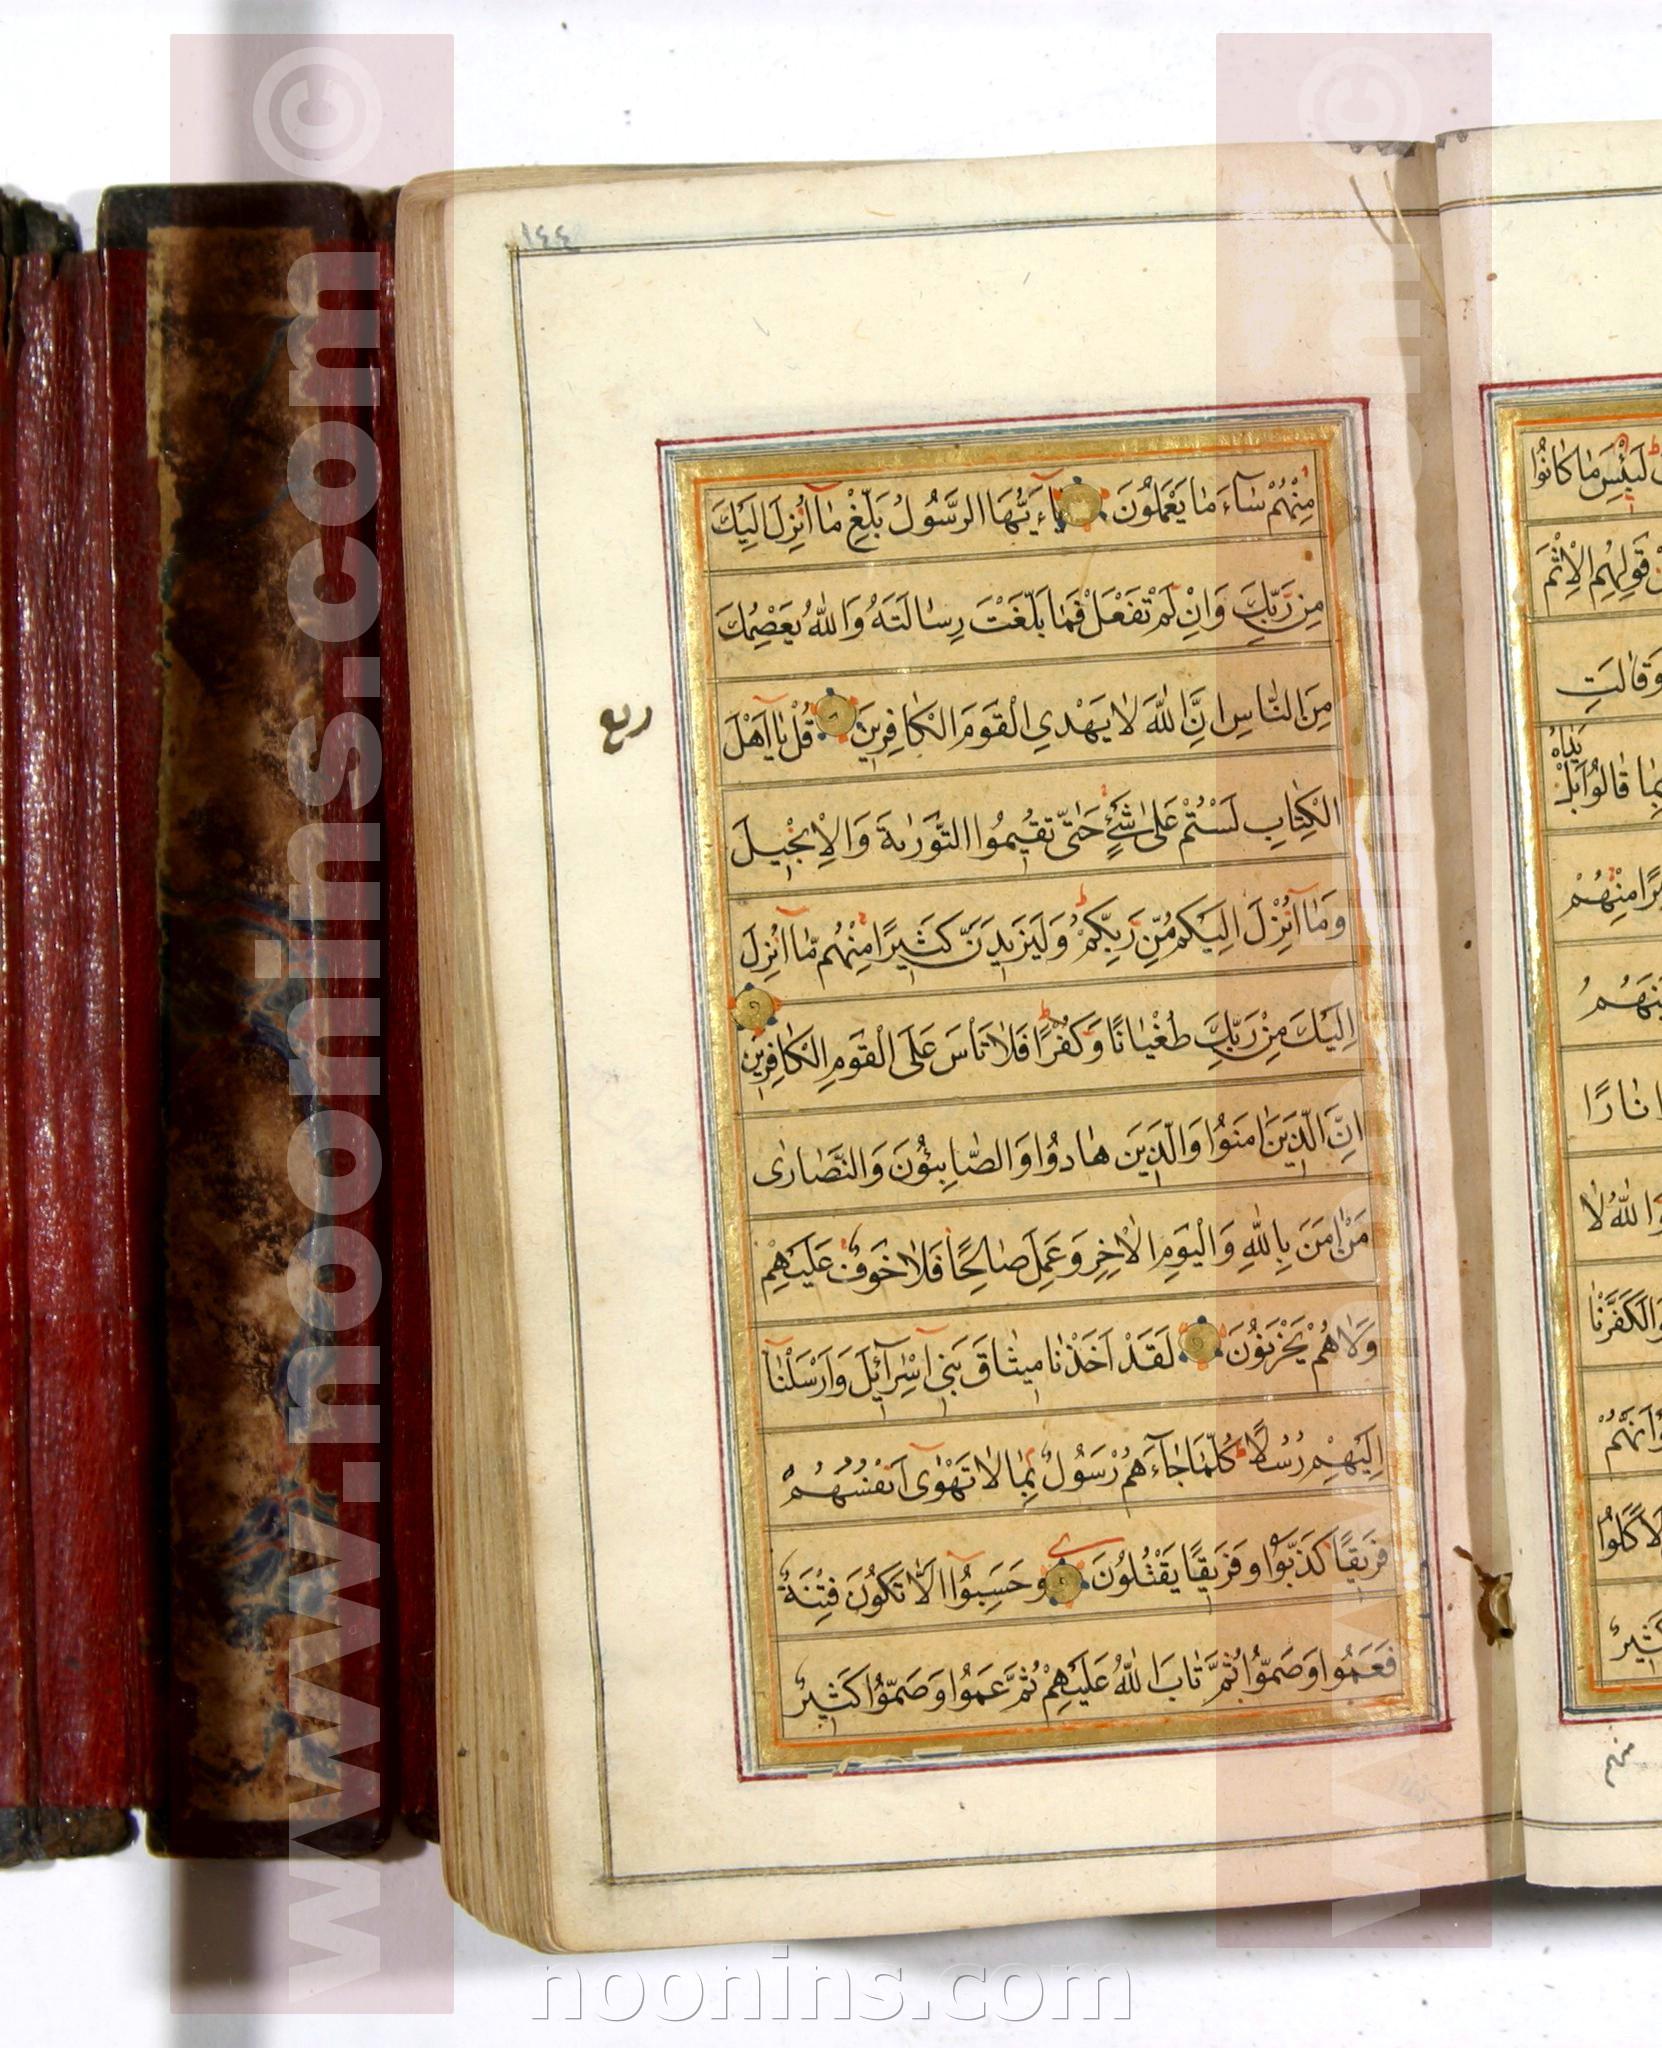 ١٤٤
مِنْهُمْ سَاءَ مَا يَعْمَلُونَ يَاءَيُّهَا الرَّسُولُ بَلِّغْ مَا اُنْزِلَ اِلَيْكَ
مِن رَبِّكَ وَاِنْ لَمْ تَفْعَلْ فَمَا بَلَّغْتَ رِسَالَتَهُ وَاللّٰهُ يَعْصِمُكَ
مِنَ النَّاسِ اِنَّ اللّٰهَ لَا يَهْدِي الْقَوْمَ الْكَافِرِينَ قُلْ يَا اَهْلَ
ربع
الْكِتَابِ لَسْتُمْ عَلَى شَيْءٍ حَتّٰى تُقِيمُوا التَّوْرٰيةَ وَالْاِنْجِيلَ
وَمَا اُنْزِلَ اِلَيْكُمْ مِن رَبِّكُمْ وَلَيَزِيدَنَّ كَثِيرًا مِنْهُم مَا اُنْزِلَ
اِلَيْكَ مِنْ رَبِّكَ طُغْيَانًا وَكُفْرًا فَلَا تَأسَ عَلَى الْقَوْمِ الْكَافِرِينَ
اِنَّ الَّذِينَ اٰمَنُوا وَالَّذِينَ هَادُوا وَالصَّابِئُونَ وَالنَّصَارٰى
مَنْ اٰمَنَ بِاللّٰهِ وَالْيَوْمِ الْاٰخِرِ وَعَمِلَ صَالِحًا فَلَا خَوْفٌ عَلَيْهِمْ
وَلَا هُمْ يَحْزَنُونَ لَقَدْ اَخَذْنَا مِيثَاقَ بَنِي اِسْرَآئِلَ وَاَرْسَلْنَا
اِلَيْهِمْ رُسُلًا كُلَّمَا جَاءَهُمْ رَسُولٌ بِمَا لَا تَهْوٰى اَنْفُسُهُمْ
فَرِيقًا كَذَّبُوا وَفَرِيقًا يَقْتُلُونَ وَحَسِبُوا اَلَّا تَكُونَ فِتْنَةٌ
فَعَمُوا وَصَمُّوا ثُمَّ تَابَ اللّٰهُ عَلَيْهِمْ ثُمَّ عَمُوا وَصَمُّوا كَثِيرٌ
لَبِئْسَ مَا كَانُوا
قَوْلِهِمُ الْاِثْمَ
وَقَالَتِ
يَدَاهُ
بِمَا قَالُوا بَلْ
مِنْهُمْ
نَارًا
وَاللّٰهُ لَا
لَكَفَّرْنَا
اَنَّهُمْ
لَاَكَلُوا
كَثِيرٌ
منهم
www.noonins.com ©
www.noonins.com ©
noonins.com